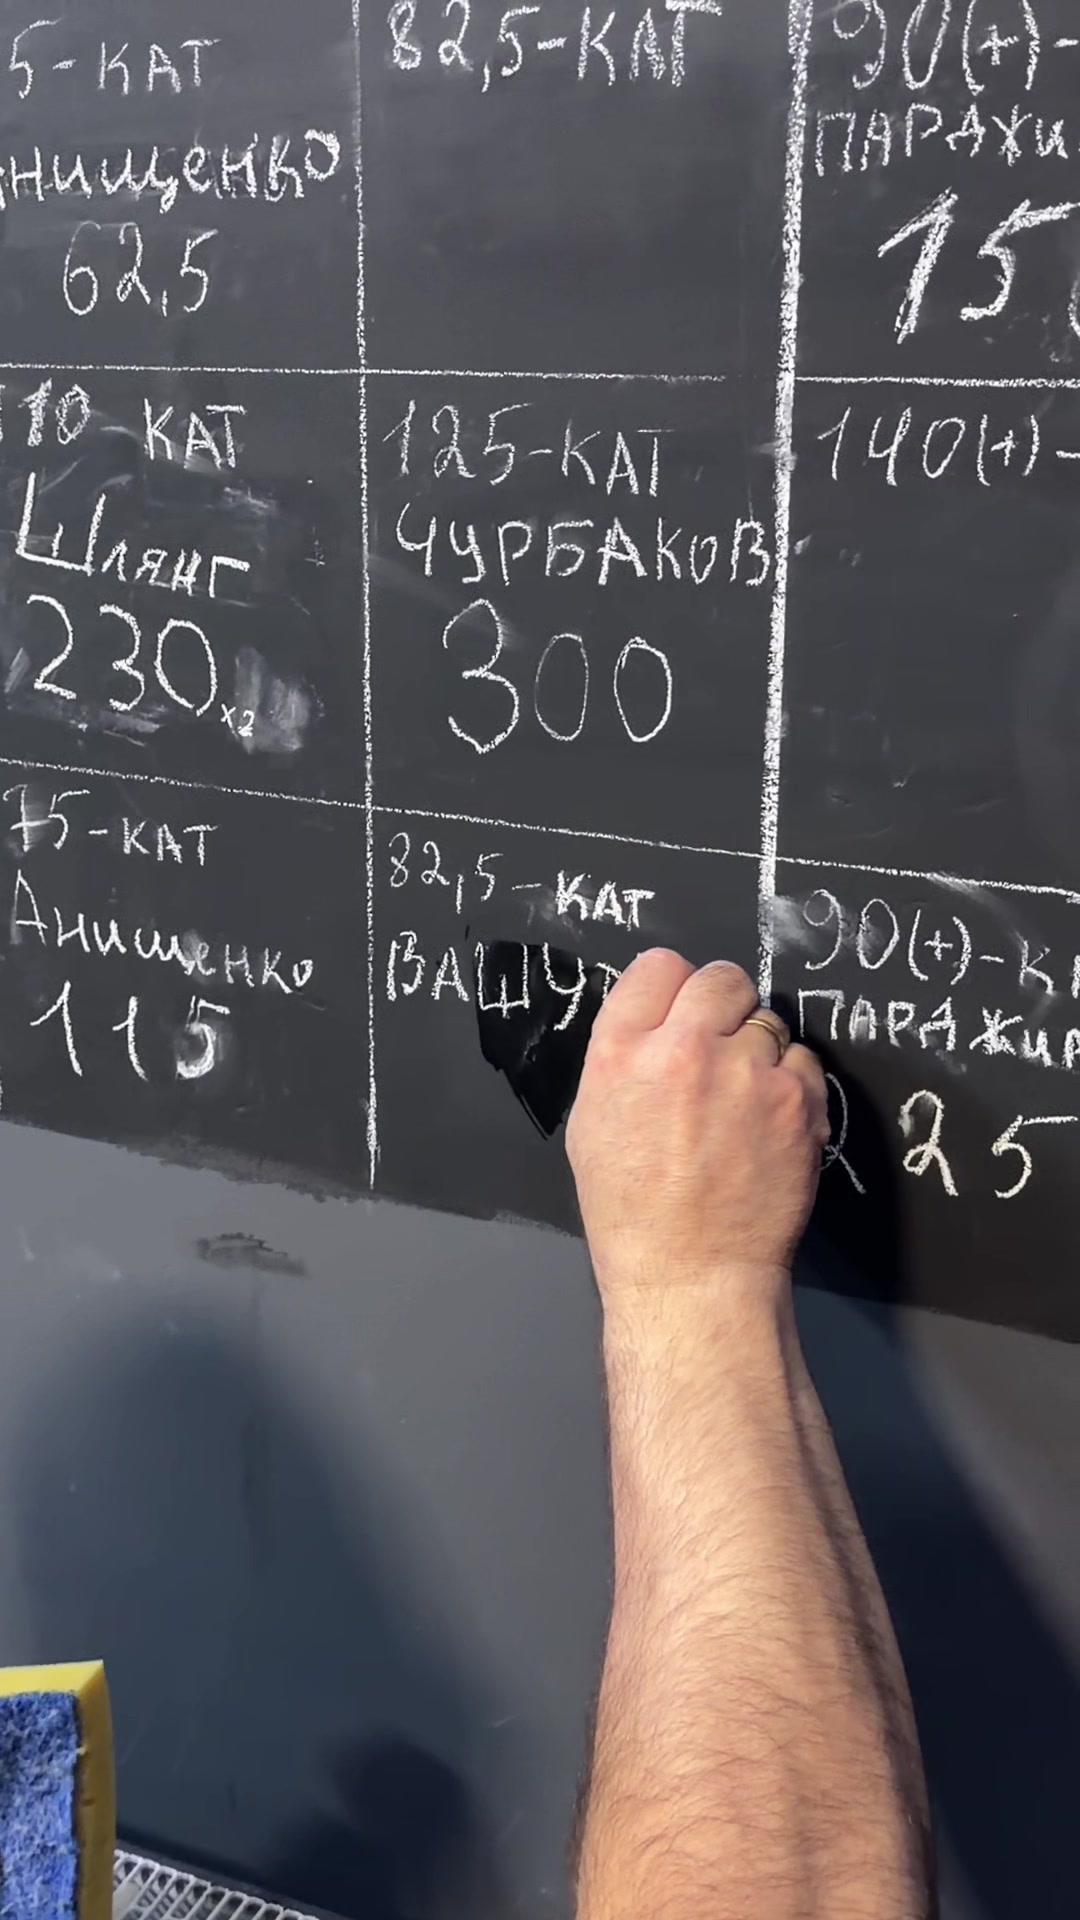 5-КАТ
нищенко
62,5
82,5-КАТ
90(+)-
ПАРАЖИ
15
110 КАТ
Шлянг
230 x2
125-КАТ
ЧУРБАКОВ
300
140(+)-
75-КАТ
Анищенко
115
82,5-КАТ
ВАШУ
90(+)-К
ПАРАЖИР
225